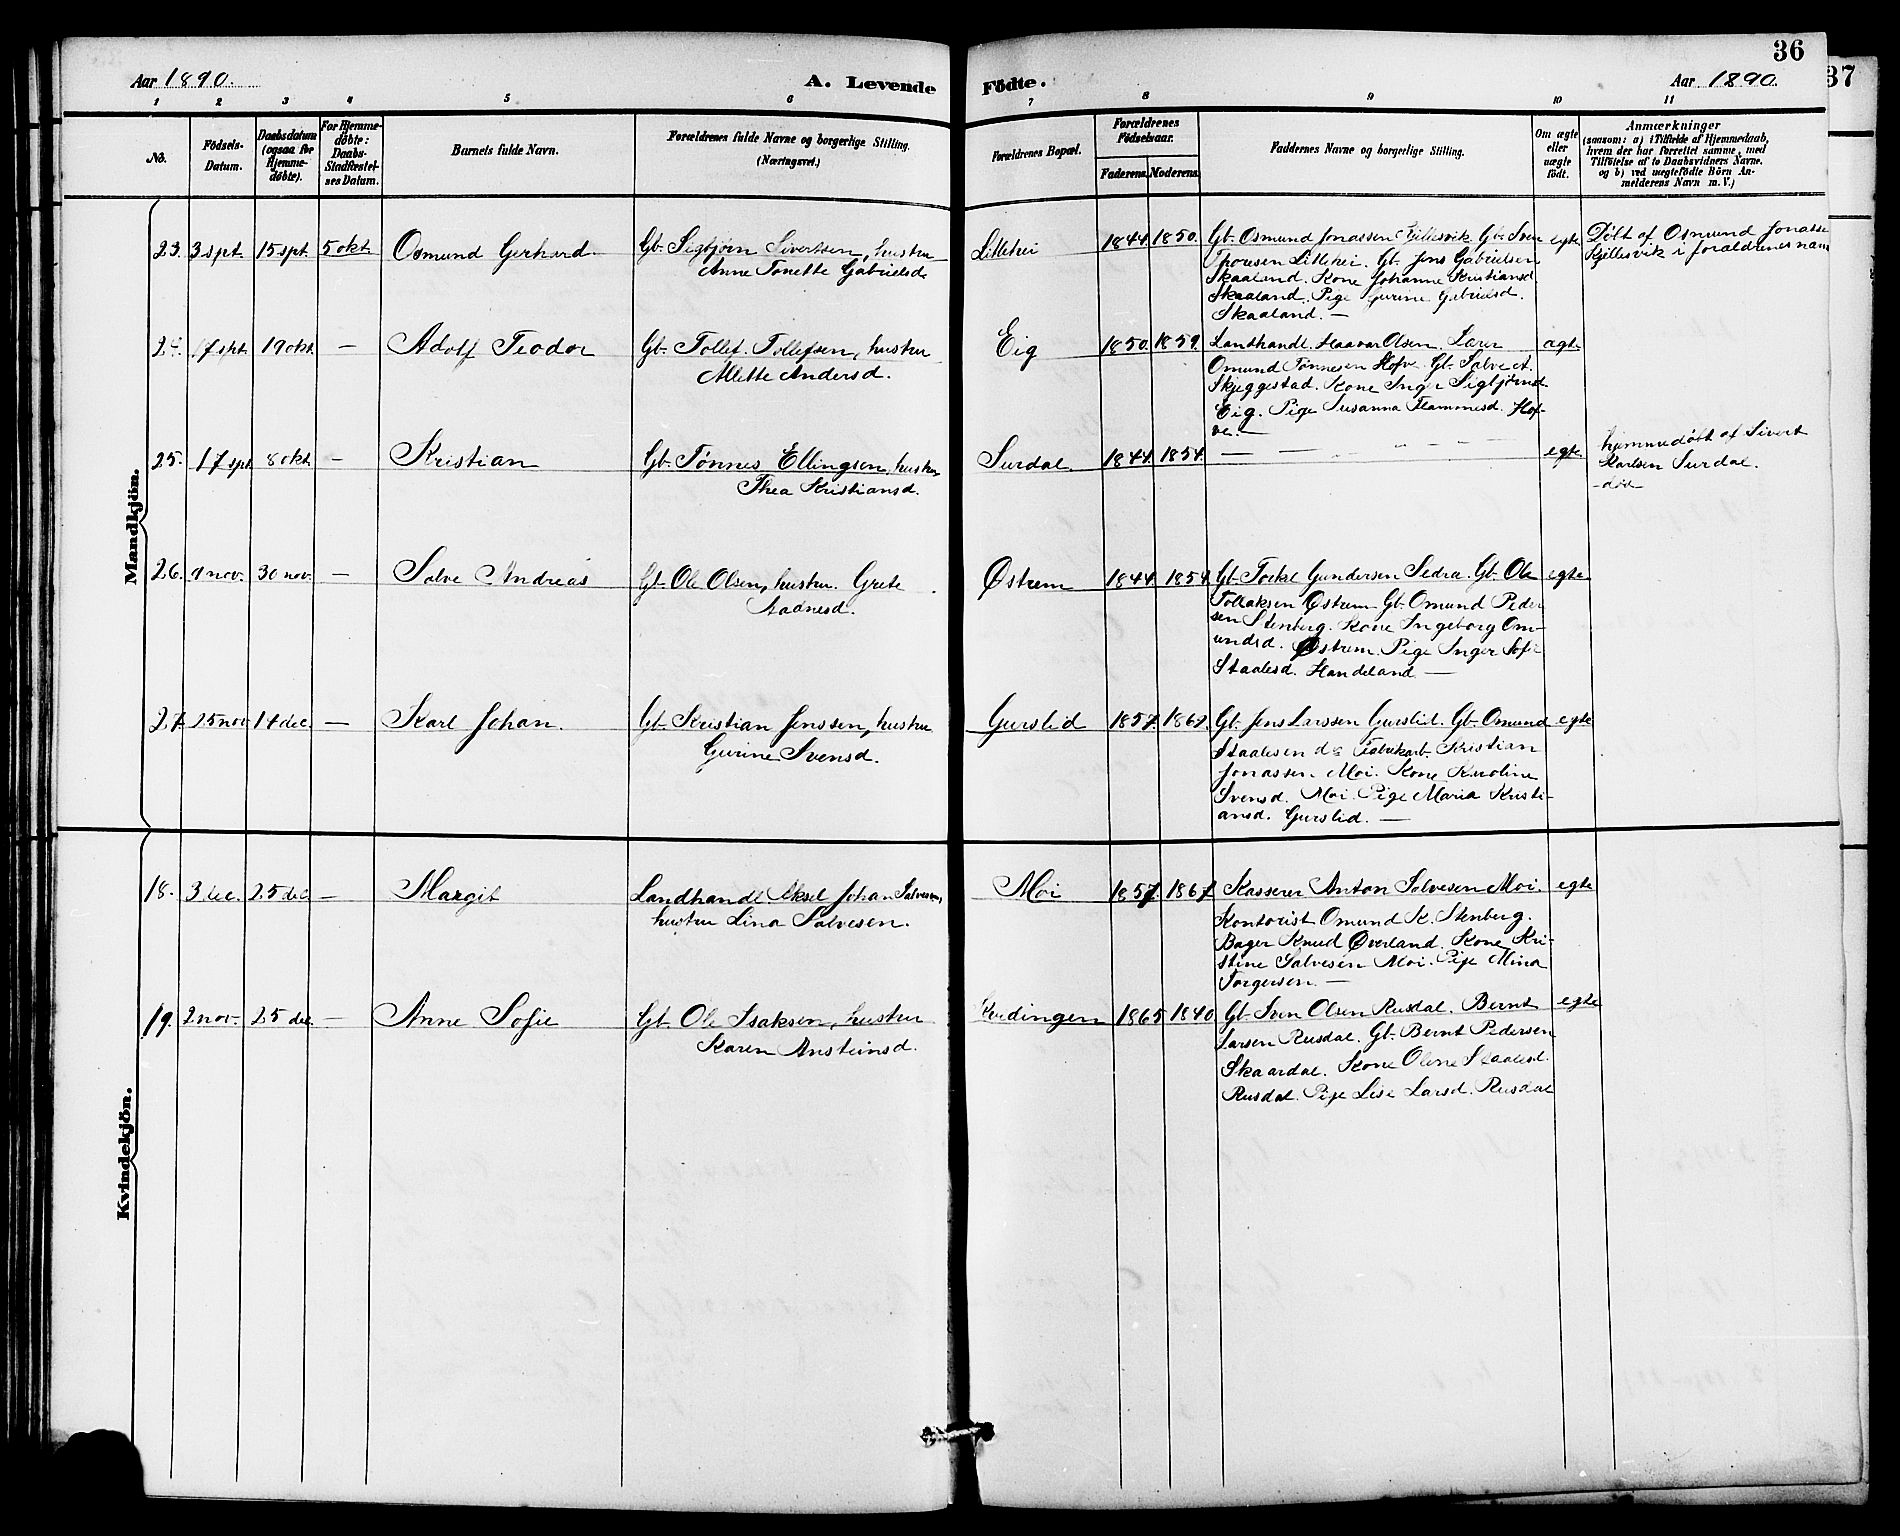 36
37
Aar 1890.
A. Levende
Födte.
Aar 1890.
1 2 3 4 5 6 7 8 9 10 11
No.
Födsels-Datum.
Daabsdatum (ogsaa for Hjemme-döbte).
For Hjemme-döbte: Daabs-Stadfæstel-ses Datum.
Barnets fulde Navn.
Forældrenes fulde Navne og borgerlige Stilling.
(Næringsvei.)
Forældrenes Bopæl.
Forældrenes Födselsaar.
Faderens. Moderens.
Faddernes Navne og borgerlige Stilling.
Om ægte eller uægte födt.
Anmærkninger
(saasom: a) i Tilfælde af Hjemmedaab,
hvem der har forrettet samme, med
Tilföielse af to Daabsvidners Navne.
og b) ved uægtefödte Börn An-
melderens Navn m. V.)
Mandkjön.
23. 3 spt. 15 spt. 5 okt. Osmund Gerhard.
Gb. Sigbjørn Sivertsen, hustru
Anne Tonette Gabrielsd.
Lillehei 1844. 1850.
Gb. Osmund Jonassen Kjellesvik Gb. Sven
Thoresen Lillehei. Gb. Jens Gabrielsen
Skaaland. Kone Johanne Kristiansd.
Skaaland. Pige Gurine Gabrielsd.
Skaaland. —
egte
Døbt af Osmund Jonasse
Kjellesvik i forældrenes navn
24. 17 spt. 19 okt. — Adolf Teodor
Gb. Tollef Tollefsen, hustru
Mette Andersd.
Eig 1850. 1859.
Landhandl. Haavar Olsen. Lærer
Omund Tønnesen Hofve. Gb. Salve A.
Skjeggestad. Kone Inger Sigbjørnsd.
Eig. Pige Susanna Flammesd. Hof-
ve. —
ægte
25. 17 spt. 8 okt. — Kristian
Gb. Tønnes Ellingsen, hustru
Thea Kristiansd.
Surdal. 1844. 1854. — — — — —
egte
hjemmedøbt af Sivert
Karlsen Surdal.
- død -
26. 9 nov. 30 nov. — Salve Andreas
Gb. Ole Olsen, hustru Grete
Aadnesd.
Østrem 1844. 1854.
Gb. Torkel Gundersen Sedra. Gb. Ole
Tollaksen Østrem. Gb. Omund Peder
sen Stenberg. Kone Ingeborg Om-
undsd. Østrem. Pige Inger Sofie
Staalesd. Handeland —
egte
27. 25 nov. 14 dec. — Karl Johan.
Gb. Kristian Jenssen, hustru
Gurine Svensd.
Gurslid 1857. 1862.
Gb. Jens Larssen Gurslid. Gb. Omund
Staalesen do Fabrikarb. Kristian
Jonassen Moi. Kone Karoline
Svensd. Moi. Pige Maria Kristi-
ansd. Gurslid. —
egte
Kvindekjön.
18. 3 dec. 25 dec. — Margit
Landhandl. Aksel Johan Salvesen,
hustru Lina Salvesen.
Moi 1857. 1867.
Kasserer Anton Salvesen Moi.
Kontorist Omund K. Stenberg.
Bager Knud Øverland. Kone Kri-
stine Salvesen Moi. Pige Mina
Torgersen —
egte
19. 2 nov. 25 dec. — Anne Sofie
Gb. Ole Isaksen, hustru
Karen Ansteinsd.
Kvidingen 1865 1840
Gb. Sven Olsen Rusdal. Bernt
Larsen Rusdal. Gb. Bernt Pedersen
Skaardal. Kone Olene Staalesd.
Rusdal. Pige Lise Larsd. Rusdal
egte